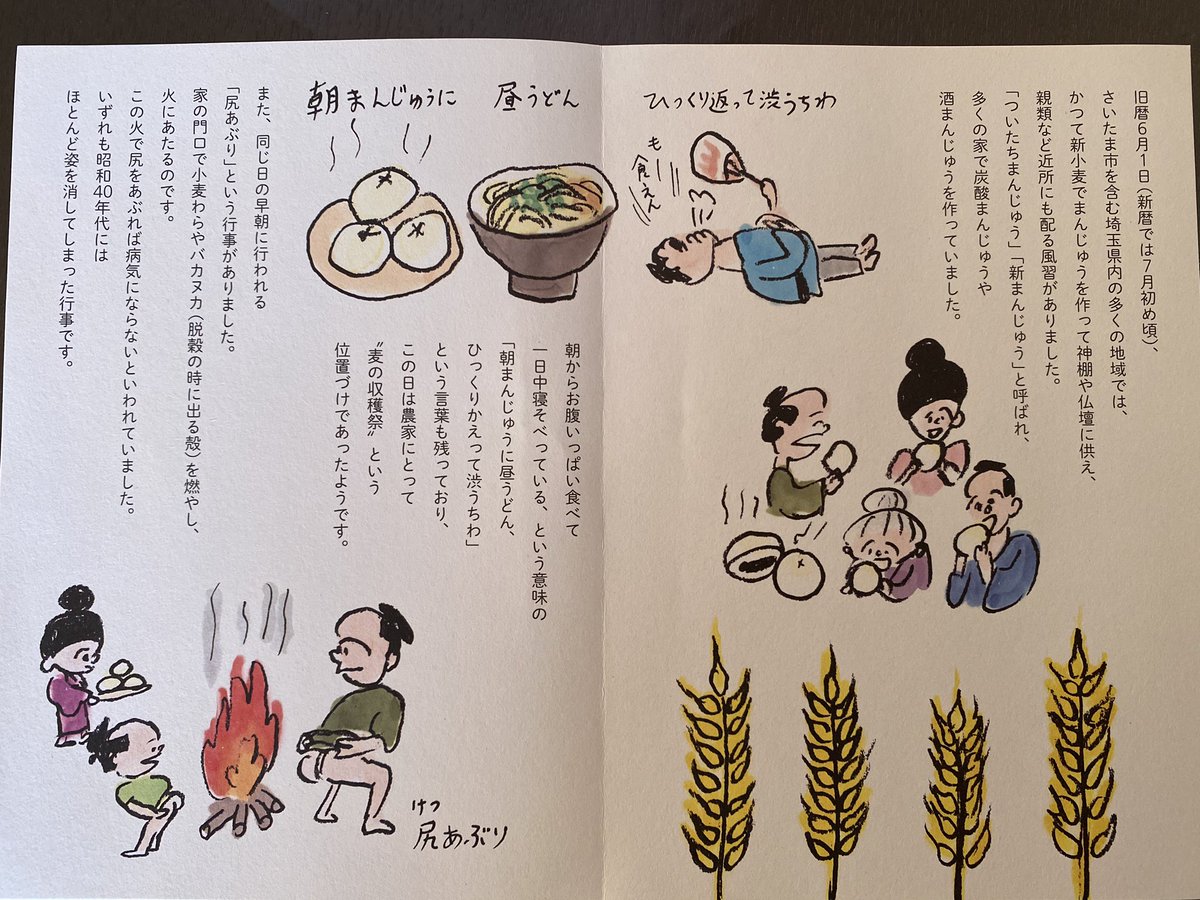 旧暦6月1日(新暦では7月初め頃)、
さいたま市を含む埼玉県内の多くの地域では、
かつて新小麦でまんじゅうを作って神棚や仏壇に供え、
親類など近所にも配る風習がありました。
「ついたちまんじゅう」「新まんじゅう」と呼ばれ、
多くの家で炭酸まんじゅうや
酒まんじゅうを作っていました。
ひっくり返って渋うちわ
もー食えん
朝まんじゅうに 昼うどん
朝からお腹いっぱい食べて
一日中寝そべっている、という意味の
「朝まんじゅうに昼うどん、
ひっくりかえって渋うちわ」
という言葉も残っており、
この日は農家にとって
〝麦の収穫祭〟という
位置づけであったようです。
また、同じ日の早朝に行われる
「尻あぶり」という行事がありました。
家の門口で小麦わらやバカヌカ(脱穀の時に出る殻)を燃やし、
火にあたるのです。
この火で尻をあぶれば病気にならないといわれていました。
いずれも昭和40年代には
ほとんど姿を消してしまった行事です。
けつ
尻あぶり